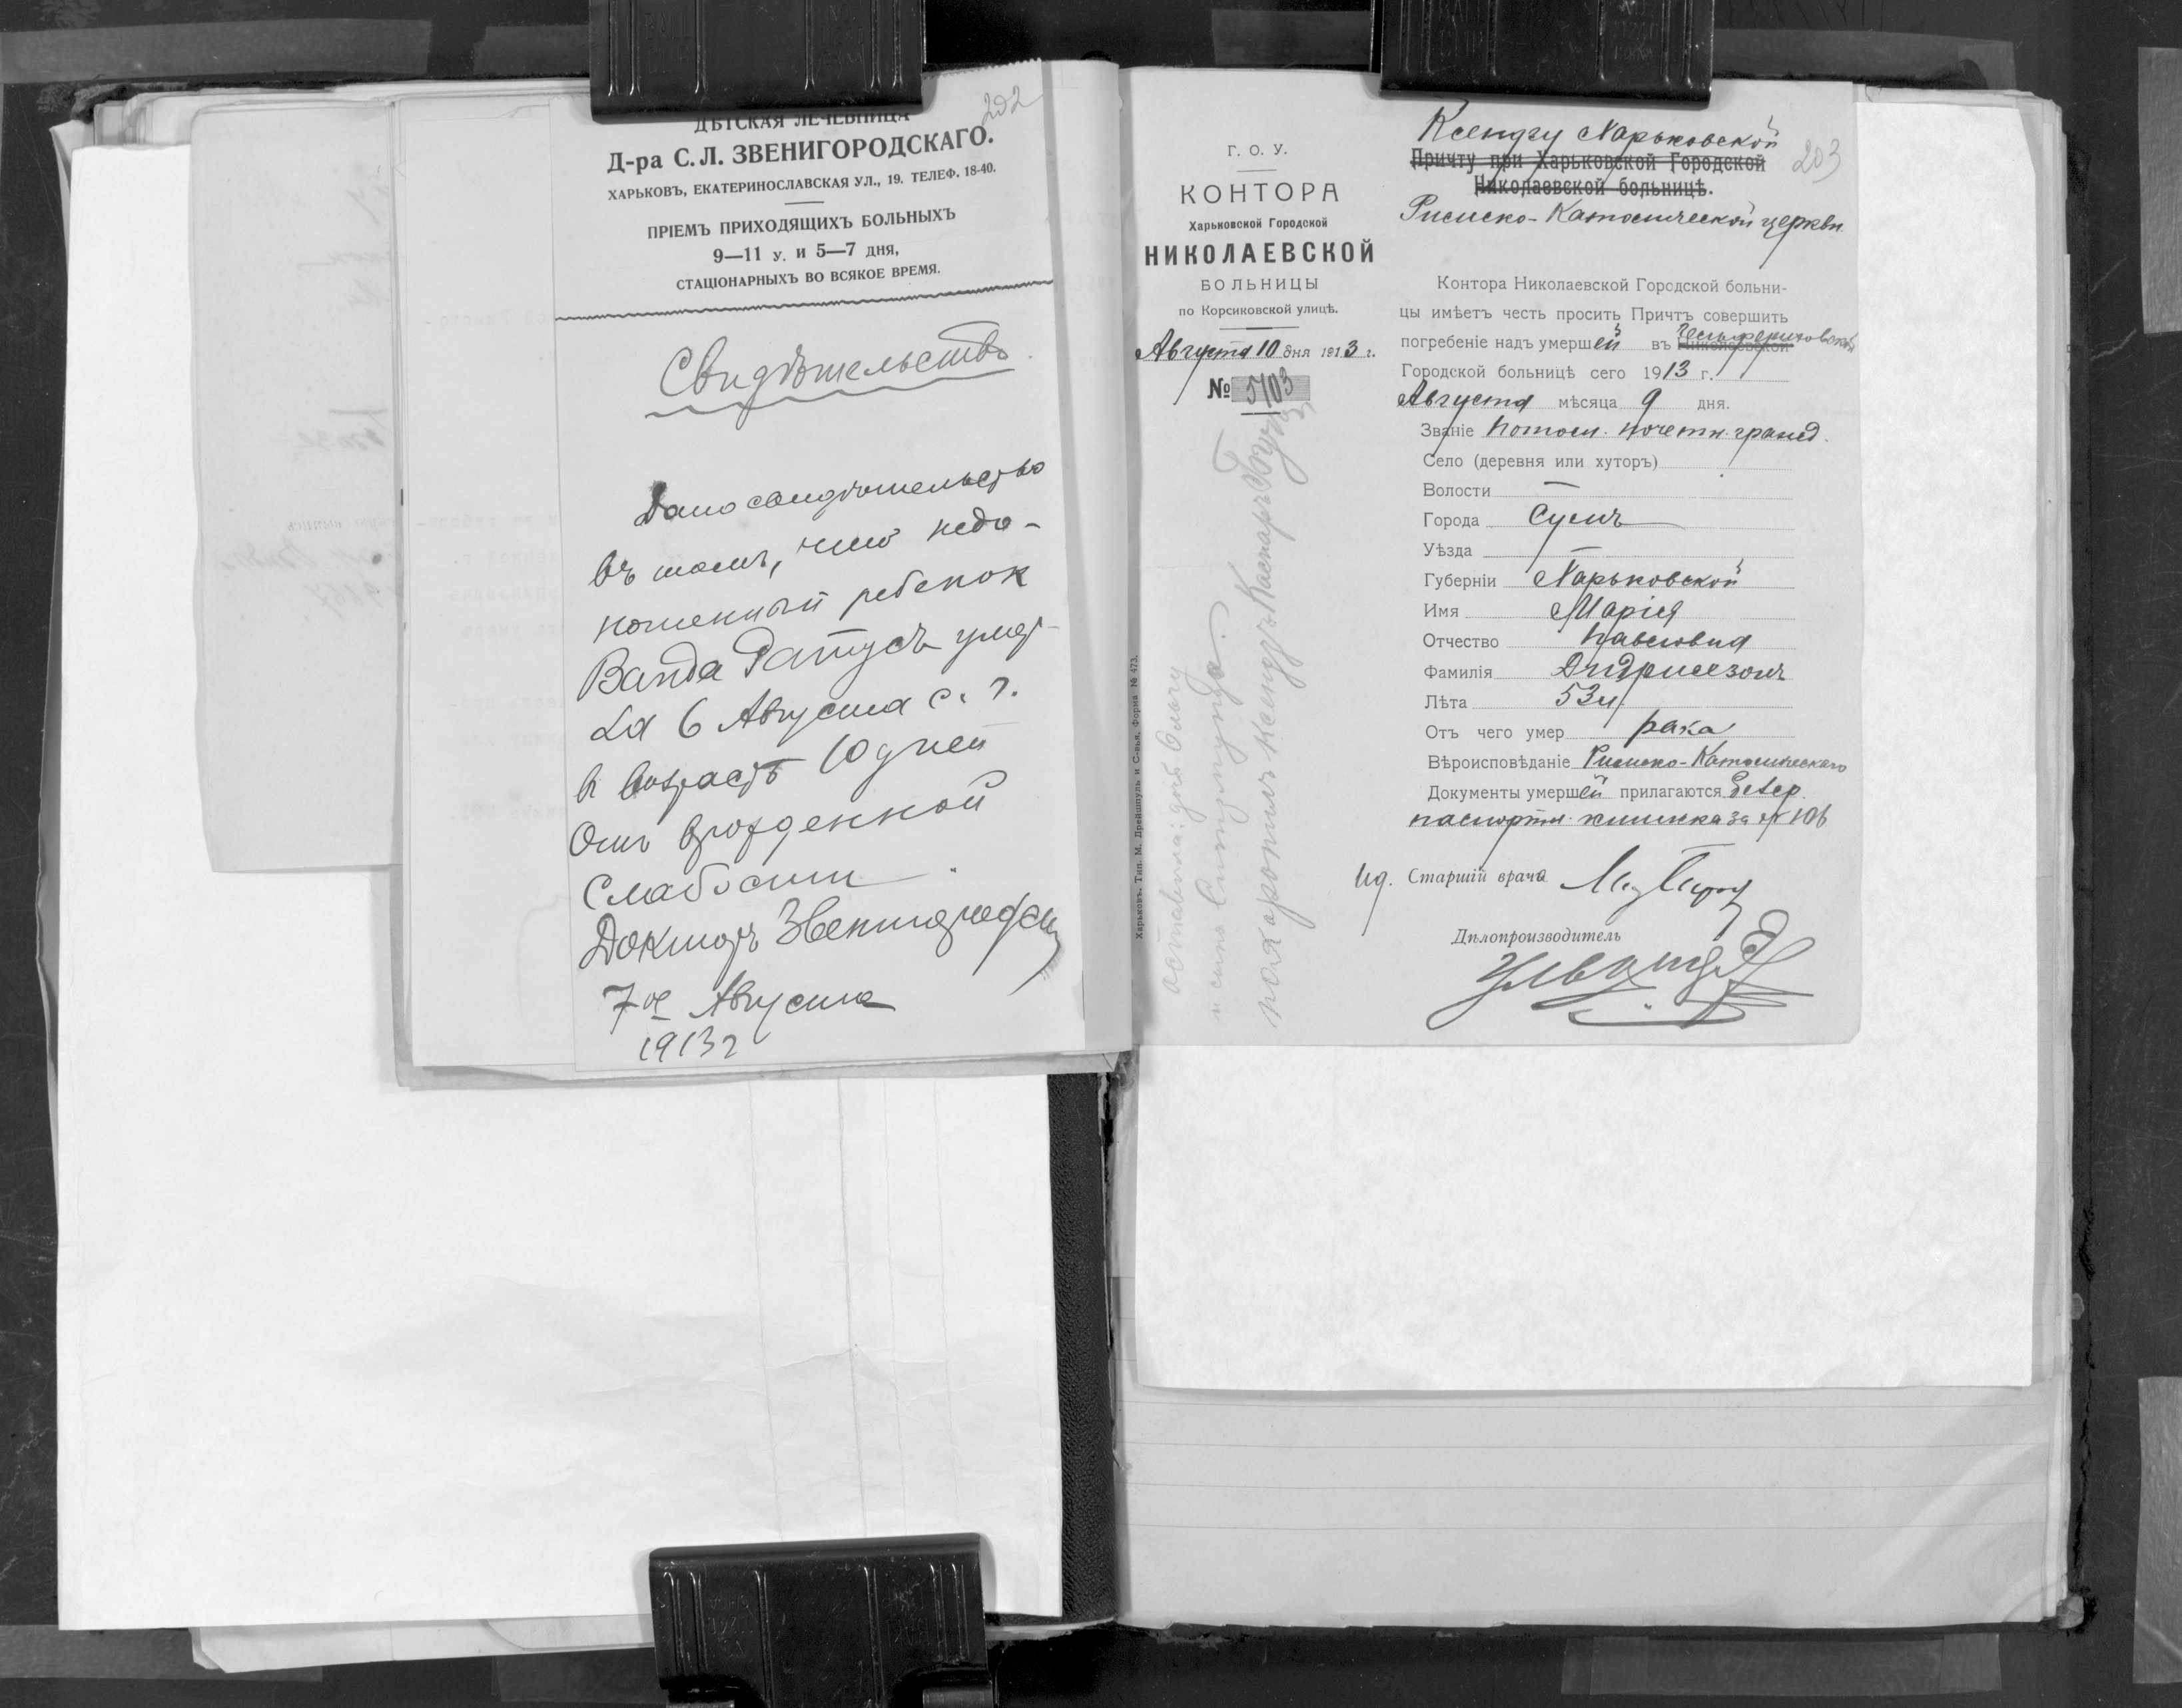 202
ДѢТСКАЯ ЛѢЧЕБНИЦА
Д-ра С. Л. ЗВЕНИГОРОДСКАГО.
ХАРЬКОВЪ, ЕКАТЕРИНОСЛАВСКАЯ УЛ., 19. ТЕЛЕФ. 18-40.
ПРІЕМЪ ПРИХОДЯЩИХЪ БОЛЬНЫХЪ
9—11 У. И 5—7 ДНЯ,
СТАЦІОНАРНЫХЪ ВО ВСЯКОЕ ВРЕМЯ.
Свидѣтельство.
Дано свидѣтельство
въ томъ, что недо-
ношенный ребенок
Ванда Ратусъ умер-
ла 6 Августа с. г.
в возрастѣ 10 дней
Отъ врожденной
Слабости.
Докторъ Звенигородскій
7го Августа
1913 г
Г. О. У.
КОНТОРА
Харьковской Городской
НИКОЛАЕВСКОЙ
БОЛЬНИЦЫ
по Корсиковской улицѣ.
Августа 10 дня 1913 г.
№ 5703
оставила: дочь Ольгу
и сына Сигизмунда.
похоронилъ Ксендзъ Каспаръ
Харьковъ. Тип. М. Дрейшпуль и С-вья. Форма № 473.
203
Ксендзу Харьковской
Причту при Харьковской Городской
Николаевской больницѣ.
Римско-Католической церкви.
Контора Николаевской Городской больни-
цы имѣетъ честь просить Причтъ совершить
погребеніе надъ умершей въ Николаевской
Городской больницѣ сего 1913 г.
Августа мѣсяца 9 дня.
Званіе Потом. почетн. гражд.
Село (деревня или хуторъ)
Волости —
Города Сумъ
Уѣзда —
Губерніи Харьковской
Имя Марія
Отчество Павловна
Фамилія
Лѣта 53 л.
Отъ чего умер рака
Вѣроисповѣданіе Римско-Католическаго
Документы умершей прилагаются безср.
паспортн. книжка за № 106
Ид. Старшій врача
Дѣлопроизводитель